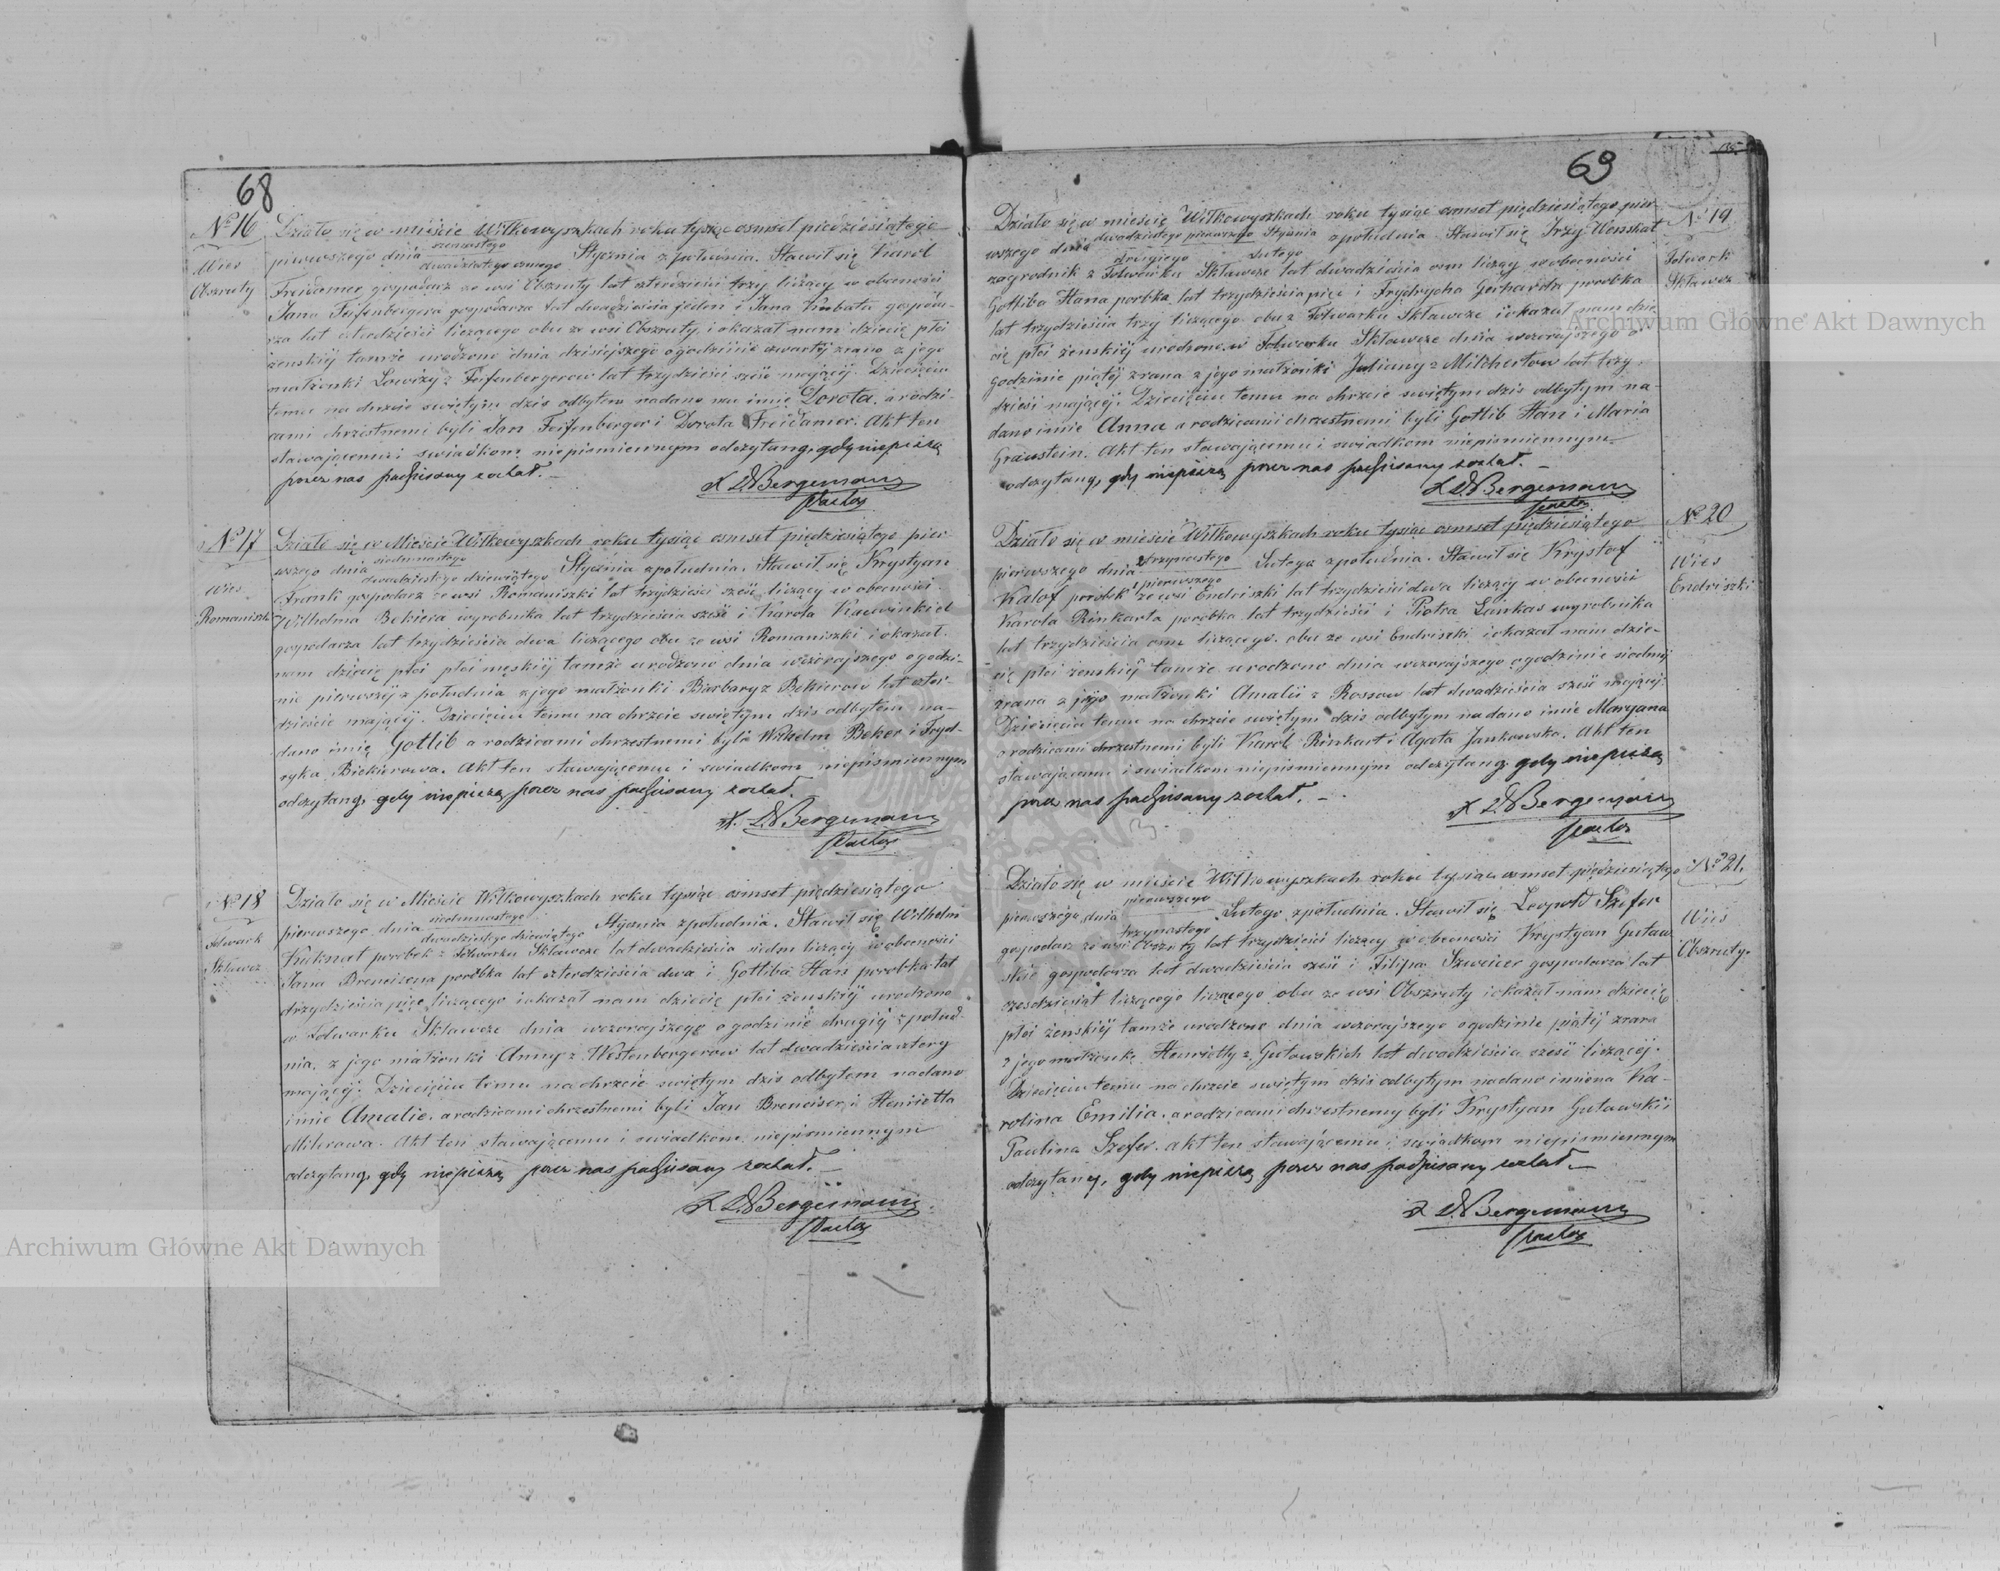 68
№ 16
Wies
Obszruty
Działo się w mieście Wiłkowyszkach roku tysiąc osmset pięćdziesiątego
pierwszego dnia szesnastego / dwudziestego osmego Stycznia z południa. Stawił się Karol
Freidamer gospodarz ze wsi Obszruty lat czterdzieści trzy liczący w obecności
Jana Feifenbergera gospodarza lat dwadzieścia jeden i Jana Kubata gospoda-
rza lat liczącego obu ze wsi Obszruty, i okazał nam dziecię płci
żenskiéj tamże urodzone dnia dzisiejszego o godzinie czwartéj zrana z jego
małżonki Lowizy z Feifenbergerow lat trzydzieści sześć mającéj. Dziecięciu
temu na chrzcie świętym dzis odbytem nadano na imię Dorota, a rodzi-
cami chrzestnemi byli Jan Feifenberger i Dorota Freidamer. Akt ten
stawającemu i swiadkom niepismiennym odczytany, gdy niepiszą
przez nas podpisany został.
X L. Bergemann
Pastor
№ 17
Wies
Romaniszki
Działo się w Mieście Wiłkowyszkach roku tysiąc osmset pięćdziesiątego pier
wszego dnia siedmnastego / dwudziestego dziewiątego Stycznia z południa. Stawił się Krystyan
Frank gospodarz ze wsi Romaniszki lat trzydzieści sześć liczący w obecności
Wilhelma Bekiera wyrobnika lat trzydzieścia sześć i Karola Kaewinkiel
gospodarza lat trzydzieścia dwa liczącego obu ze wsi Romaniszki i okazał
nam dziecię płci płci męskiéj tamże urodzone dnia wczorajszego o godzi-
nie pierwszéj z południa z jego małżonki Barbary z Bekierow lat czter-
dzieście mającéj. Dziecięciu temu na chrzcie świętym dzis odbytem na-
dano imię Gotlib a rodzicami chrzestnemi byli Wilhelm Beker i Fryd-
ryka Biekierowa. Akt ten stawającemu i swiadkom niepismiennym
odczytany, gdy niepiszą przez nas podpisany został.
X. L. Bergemann
Pastor
№ 18
Folwark
Skławcze
Działo się w Mieście Wiłkowyszkach roku tysiąc osmset pięćdziesiątego
pierwszego dnia siedmnastego / dwudziestego dziewiątego Stycznia z południa. Stawił się Wilhelm
Kuknat parobek z Folwarku Skławcze lat dwadzieścia siedm liczący w obecności
Jana Breneisena parobka lat czterdzieścia dwa i Gotliba Han parobka lat
trzydzieścia pięć liczącego i okazał nam dziecię płci żenskiéj urodzone
w Folwarku Skławcze dnia wczorajszego o godzinie drugiéj z połud-
nia, z jego małżonki Anny z Westenbergerow lat dwadzieścia cztery
mającéj. Dziecięciu temu na chrzcie świętym dzis odbytem nadano
imie Amalie, a rodzicami chrzestnemi byli Jan Breneiser i Henrietta
Milerowa. Akt ten stawającemu i swiadkom niepismiennym
odczytany, gdy niepiszą przez nas podpisany został.
X L. Bergemann
Pastor
69
№ 19
Folwark
Skławcze
Działo się w mieście Wiłkowyszkach roku tysiąc osmset pięćdziesiątego pier
wszego dnia dwudziestego pierwszego Stycznia / drugiego Lutego z południa. Stawił się Jrzy Wenskat
zagrodnik z Folwarku Skławcze lat dwadzieścia osm liczący w obecności
Gotliba Hana parobka lat trzydzieścia pięć i Frydrycha Gerharda parobka
lat trzydzieścia trzy liczącego obu z Folwarku Skławcze i okazał nam dzie
cię płci żenskiéj urodzone w Folwarku Skławcze dnia wczorajszego o
godzinie piątéj zrana z jego małżonki Julianny z Milchertow lat trzy-
dzieści mającéj. Dziecięciu temu na chrzcie świętym dzis odbytym na-
dano imie Anna a rodzicami chrzestnemi byli Gotlib Han i Maria
Graustein. Akt ten stawającemu i swiadkom niepismiennym
odczytany, gdy niepiszą przez nas podpisany został.
X L. Bergemann
Pastor
№ 20
Wies
Endriszki
Działo się w mieście Wiłkowyszkach roku tysiąc osmset pięćdziesiątego
pierwszego dnia trzynastego / pierwszego Lutego z południa. Stawił się Krystof
Kalof parobk ze wsi Endriszki lat trzydzieści dwa liczący w obecności
Karola Rinkarta parobka lat trzydzieści i Piotra Lunkas wyrobnika
lat trzydzieścia osm liczącego obu ze wsi Endriszki i okazał nam dzie-
cię płci żenskiéj tamże urodzone dnia wczorajszego o godzinie siodméj
zrana z jego małżonki Amalii z Rossow lat dwadzieścia sześć mającéj.
Dziecięciu temu na chrzcie świętym dzis odbytym nadano imie Maryana
a rodzicami chrzestnemi byli Karol Rinkart i Agata Jankowska. Akt ten
stawającemu i swiadkom niepismiennym odczytany gdy niepiszą
przez nas podpisany został.
X L. Bergemann
Pastor
№ 21.
Wies
Obszruty.
Działo się w mieście Wiłkowyszkach roku tysiąc osmset pięćdziesiątego
pierwszego dnia pierwszego / trzynastego Lutego z południa. Stawił się Leopold Szefer
gospodarz ze wsi Obszruty lat trzydzieści liczący w obecności Krystyan Gutaw
skie gospodarza lat dwadzieścia sześć i Filipa Szweicer gospodarza lat
szesdziesiąt liczącego liczącego obu ze wsi Obszruty i okazał nam dziecię
płci żenskiéj tamże urodzone dnia wczorajszego o godzinie piątéj zrana
z jego małżonką Henrietty z Gutowskich lat dwadzieścia sześć liczącéj.
Dziecięciu temu na chrzcie świętym dzis odbytym nadano imiona Ka-
rolina Emilia, a rodzicami chrzestnemy byli Krystyan Gutawski i
Paulina Szefer. Akt ten stawającemu i swiadkom niepismiennym
odczytany, gdy niepiszą przez nas podpisany został.
X L. Bergemann
Pastor
Archiwum Główne Akt Dawnych
Archiwum Główne Akt Dawnych